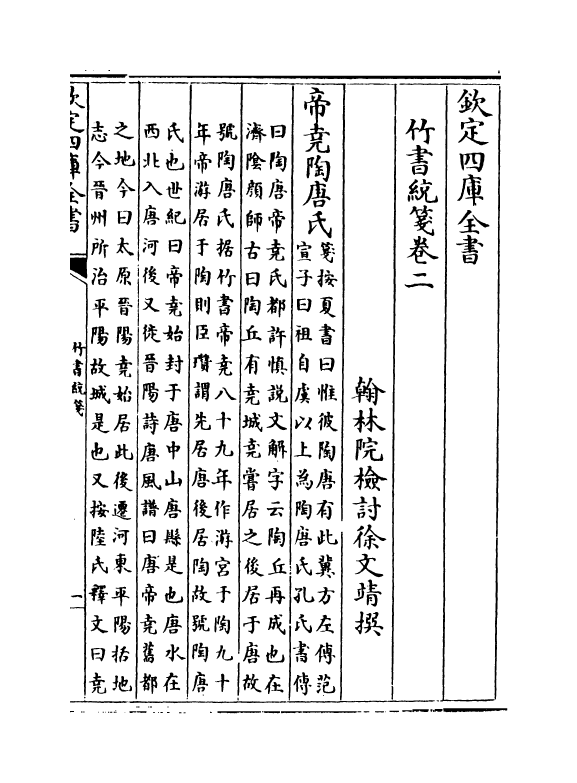 欽定四庫全書
竹書統箋卷二
翰林院檢討徐文靖撰
帝堯陶唐氏
箋按夏書曰惟彼陶唐有此冀方左傳范
宣子曰祖自虞以上為陶唐氏孔氏書傳
曰陶唐帝堯氏都許慎説文解字云陶丘再成也在
濟陰顏師古曰陶丘有堯城堯嘗居之後居于唐故
號陶唐氏據竹書帝堯八十九年作游宮于陶九十
年帝游居于陶則臣瓚謂先居唐後居陶故號陶唐
氏也世紀曰帝堯始封于唐中山唐縣是也唐水在
西北入唐河後又徙晉陽詩唐風譜曰唐帝堯舊都
之地今曰太原晉陽堯始居此後遷河東平陽括地
志今晉州所治平陽故城是也又按陸氏釋文曰堯
欽定四庫全書
竹書統箋
一